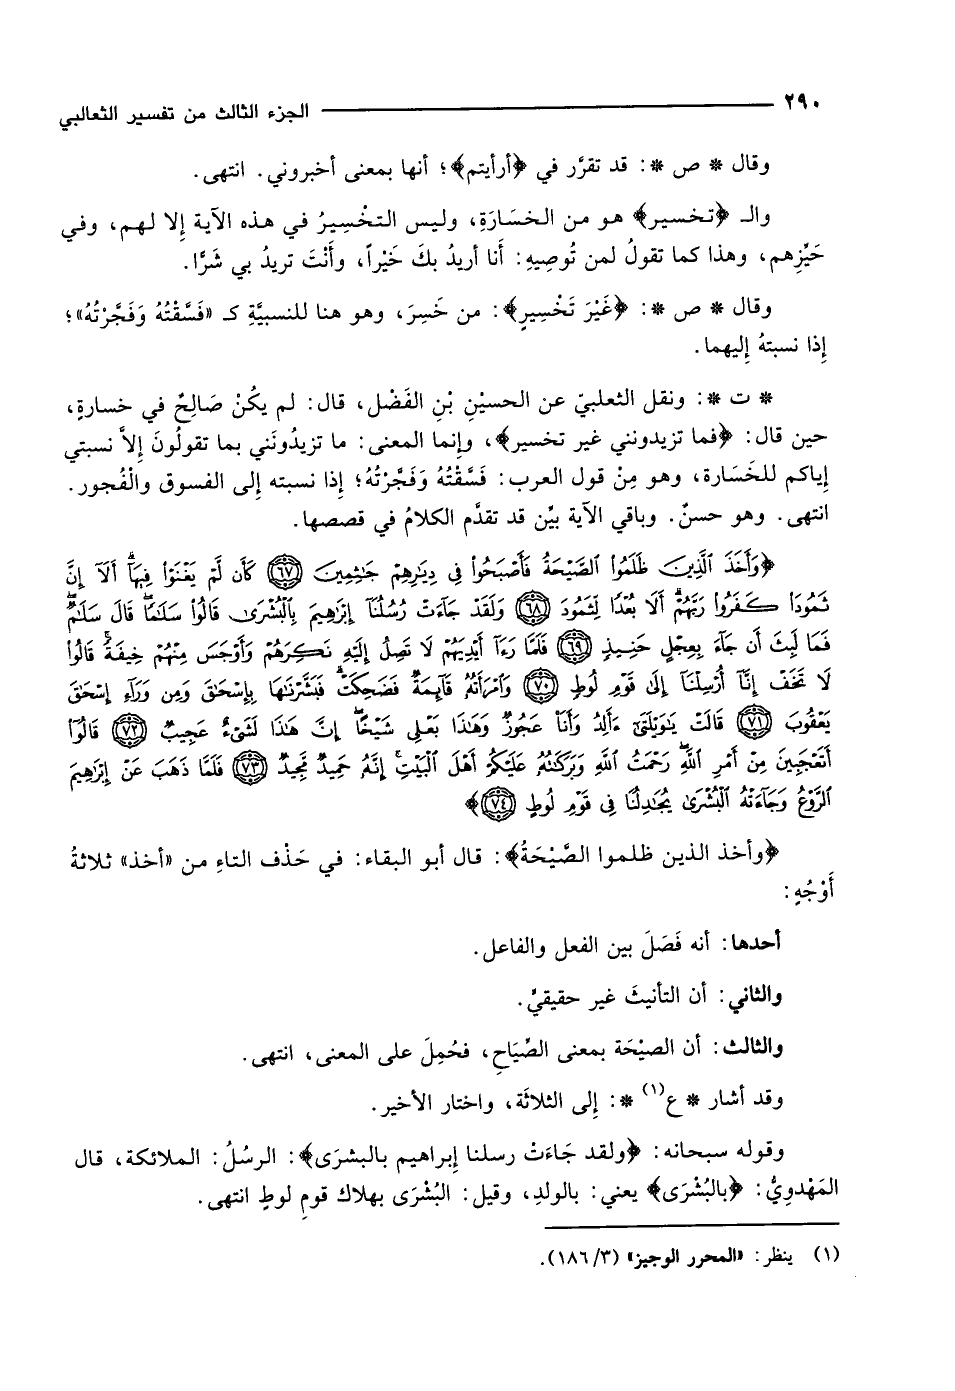 ٢٩٠ الجزء الثالث من تفسير الثعالبي
وقال * ص *: قد تقرَّر في ﴿أرأيتم﴾؛ أنها بمعنى أخبروني. انتهى.
والـ ﴿تخسير﴾ هو من الخسَارَةِ، وليس التخْسِيرُ في هذه الآية إِلا لهم، وفي
حَيِّزِهم، وهذا كما تقولُ لمن تُوصِيهِ: أَنا أريدُ بكَ خَيْراً، وأَنْتَ تريدُ بي شَرًّا.
وقال * ص *: ﴿غَيْرَ تَخْسِيرٍ﴾: من خَسِرَ، وهو هنا للنسبيَّةِ كـ «فَسَّقْتُهُ وَفَجَّرْتُهُ»؛
إِذا نسبتهُ إِليهما.
* ت *: ونقل الثعلبيّ عن الحسيْنِ بْنِ الفَضْل، قال: لم يكُنْ صَالِحٌ في خسارةٍ،
حين قال: ﴿فما تزيدونني غير تخسير﴾، وإِنما المعنى: ما تزيدُونَني بما تقولُونَ إِلاَّ نسبتي
إِياكم للخَسَارة، وهو مِنْ قول العرب: فَسَّقْتُهُ وَفَجَّرْتُهُ؛ إِذا نسبته إِلى الفسوق والْفُجور.
انتهى. وهو حسنٌ. وباقي الآية بيِّن قد تقدَّم الكلامُ في قصصها.
﴿وَأَخَذَ ٱلَّذِينَ ظَلَمُوا۟ ٱلصَّيْحَةُ فَأَصْبَحُوا۟ فِى دِيَـٰرِهِمْ جَـٰثِمِينَ ﴿٦٧﴾ كَأَن لَّمْ يَغْنَوْا۟ فِيهَآ ۗ أَلَآ إِنَّ
ثَمُودَا۟ كَفَرُوا۟ رَبَّهُمْ ۗ أَلَا بُعْدًا لِّثَمُودَ ﴿٦٨﴾ وَلَقَدْ جَآءَتْ رُسُلُنَآ إِبْرَٰهِيمَ بِٱلْبُشْرَىٰ قَالُوا۟ سَلَـٰمًا ۖ قَالَ سَلَـٰمٌ ۖ
فَمَا لَبِثَ أَن جَآءَ بِعِجْلٍ حَنِيذٍ ﴿٦٩﴾ فَلَمَّا رَءَآ أَيْدِيَهُمْ لَا تَصِلُ إِلَيْهِ نَكِرَهُمْ وَأَوْجَسَ مِنْهُمْ خِيفَةً ۚ قَالُوا۟
لَا تَخَفْ إِنَّآ أُرْسِلْنَآ إِلَىٰ قَوْمِ لُوطٍ ﴿٧٠﴾ وَٱمْرَأَتُهُۥ قَآئِمَةٌ فَضَحِكَتْ فَبَشَّرْنَـٰهَا بِإِسْحَـٰقَ وَمِن وَرَآءِ إِسْحَـٰقَ
يَعْقُوبَ ﴿٧١﴾ قَالَتْ يَـٰوَيْلَتَىٰٓ ءَأَلِدُ وَأَنَا۠ عَجُوزٌ وَهَـٰذَا بَعْلِى شَيْخًا ۖ إِنَّ هَـٰذَا لَشَىْءٌ عَجِيبٌ ﴿٧٢﴾ قَالُوٓا۟
أَتَعْجَبِينَ مِنْ أَمْرِ ٱللَّهِ ۖ رَحْمَتُ ٱللَّهِ وَبَرَكَـٰتُهُۥ عَلَيْكُمْ أَهْلَ ٱلْبَيْتِ ۚ إِنَّهُۥ حَمِيدٌ مَّجِيدٌ ﴿٧٣﴾ فَلَمَّا ذَهَبَ عَنْ إِبْرَٰهِيمَ
ٱلرَّوْعُ وَجَآءَتْهُ ٱلْبُشْرَىٰ يُجَـٰدِلُنَا فِى قَوْمِ لُوطٍ ﴿٧٤﴾﴾
﴿وأخذ الذين ظلموا الصَّيْحَةُ﴾: قال أبو البقاء: في حَذْف التاءِ من «أخذ» ثلاثةُ
أَوْجُهٍ:
أحدها: أنه فَصَلَ بين الفعل والفاعل.
والثاني: أن التأنيثَ غير حقيقيٍّ.
والثالث: أن الصيْحَة بمعنى الصِّيَاحِ، فحُمِلَ على المعنى، انتهى.
وقد أشار * ع(١) *: إِلى الثلاثَة، واختار الأخير.
وقوله سبحانه: ﴿ولقد جَاءَتْ رسلنا إِبراهيم بالبشرَى﴾: الرسُلُ: الملائكة، قال
المَهْدوِيُّ: ﴿بالبُشْرَى﴾ يعني: بالولدِ، وقيل: البُشْرَى بهلاك قومِ لوطٍ انتهى.
(١) ينظر: «المحرر الوجيز» (٣/ ١٨٦).